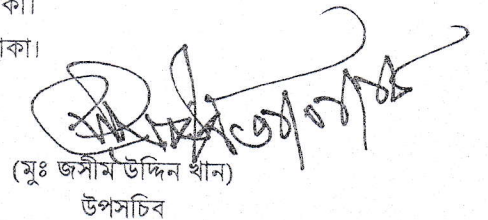 কা।
ঢাকা।
(মুঃ জসীম উদ্দিন খান)
উপসচিব